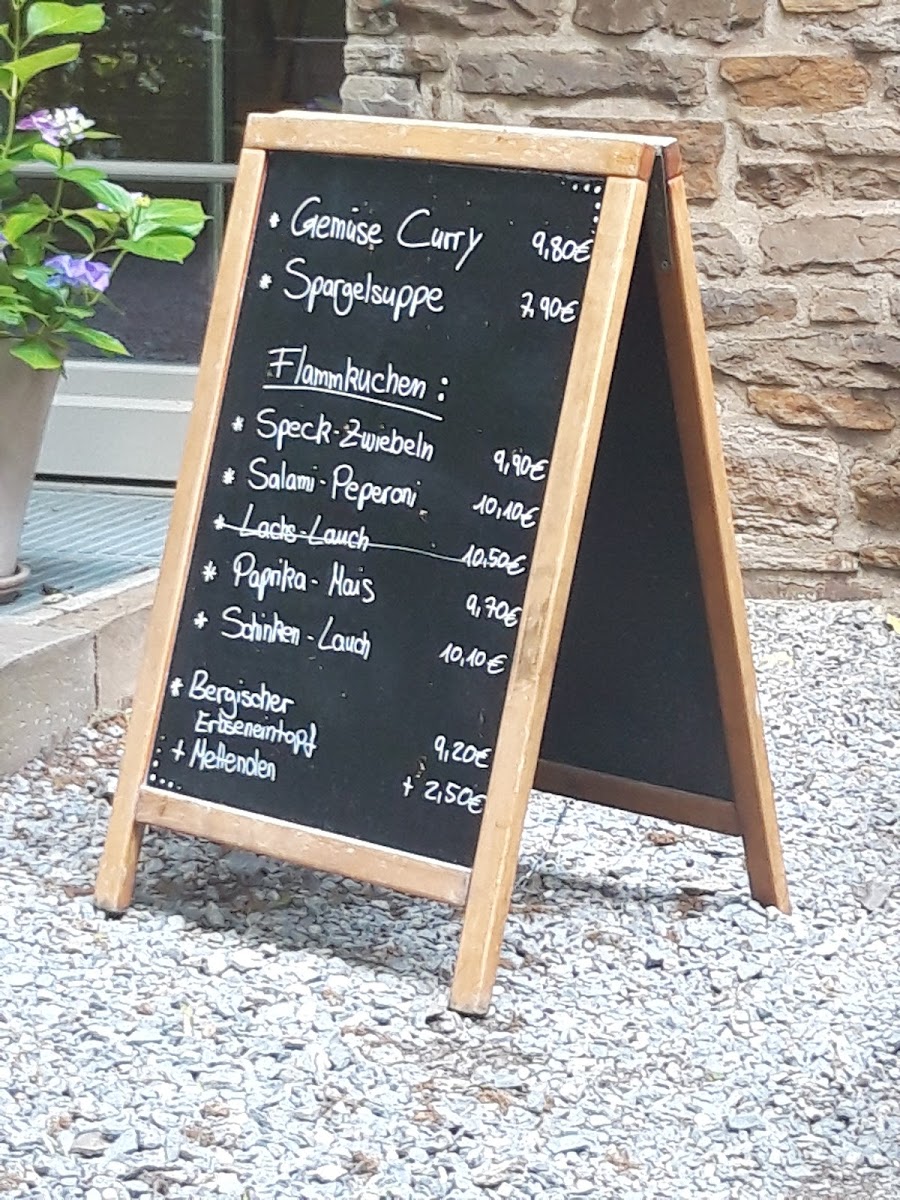 * Gemüse Curry 9,80€
* Spargelsuppe 7,90€
Flammkuchen :
* Speck-Zwiebeln 9,90€
* Salami-Peperoni 10,10€
* Lachs-Lauch 10,50€
* Paprika-Mais 9,70€
* Schinken-Lauch 10,10€
* Bergischer
Erbseneintopf 9,20€
+ Mettenden + 2,50€